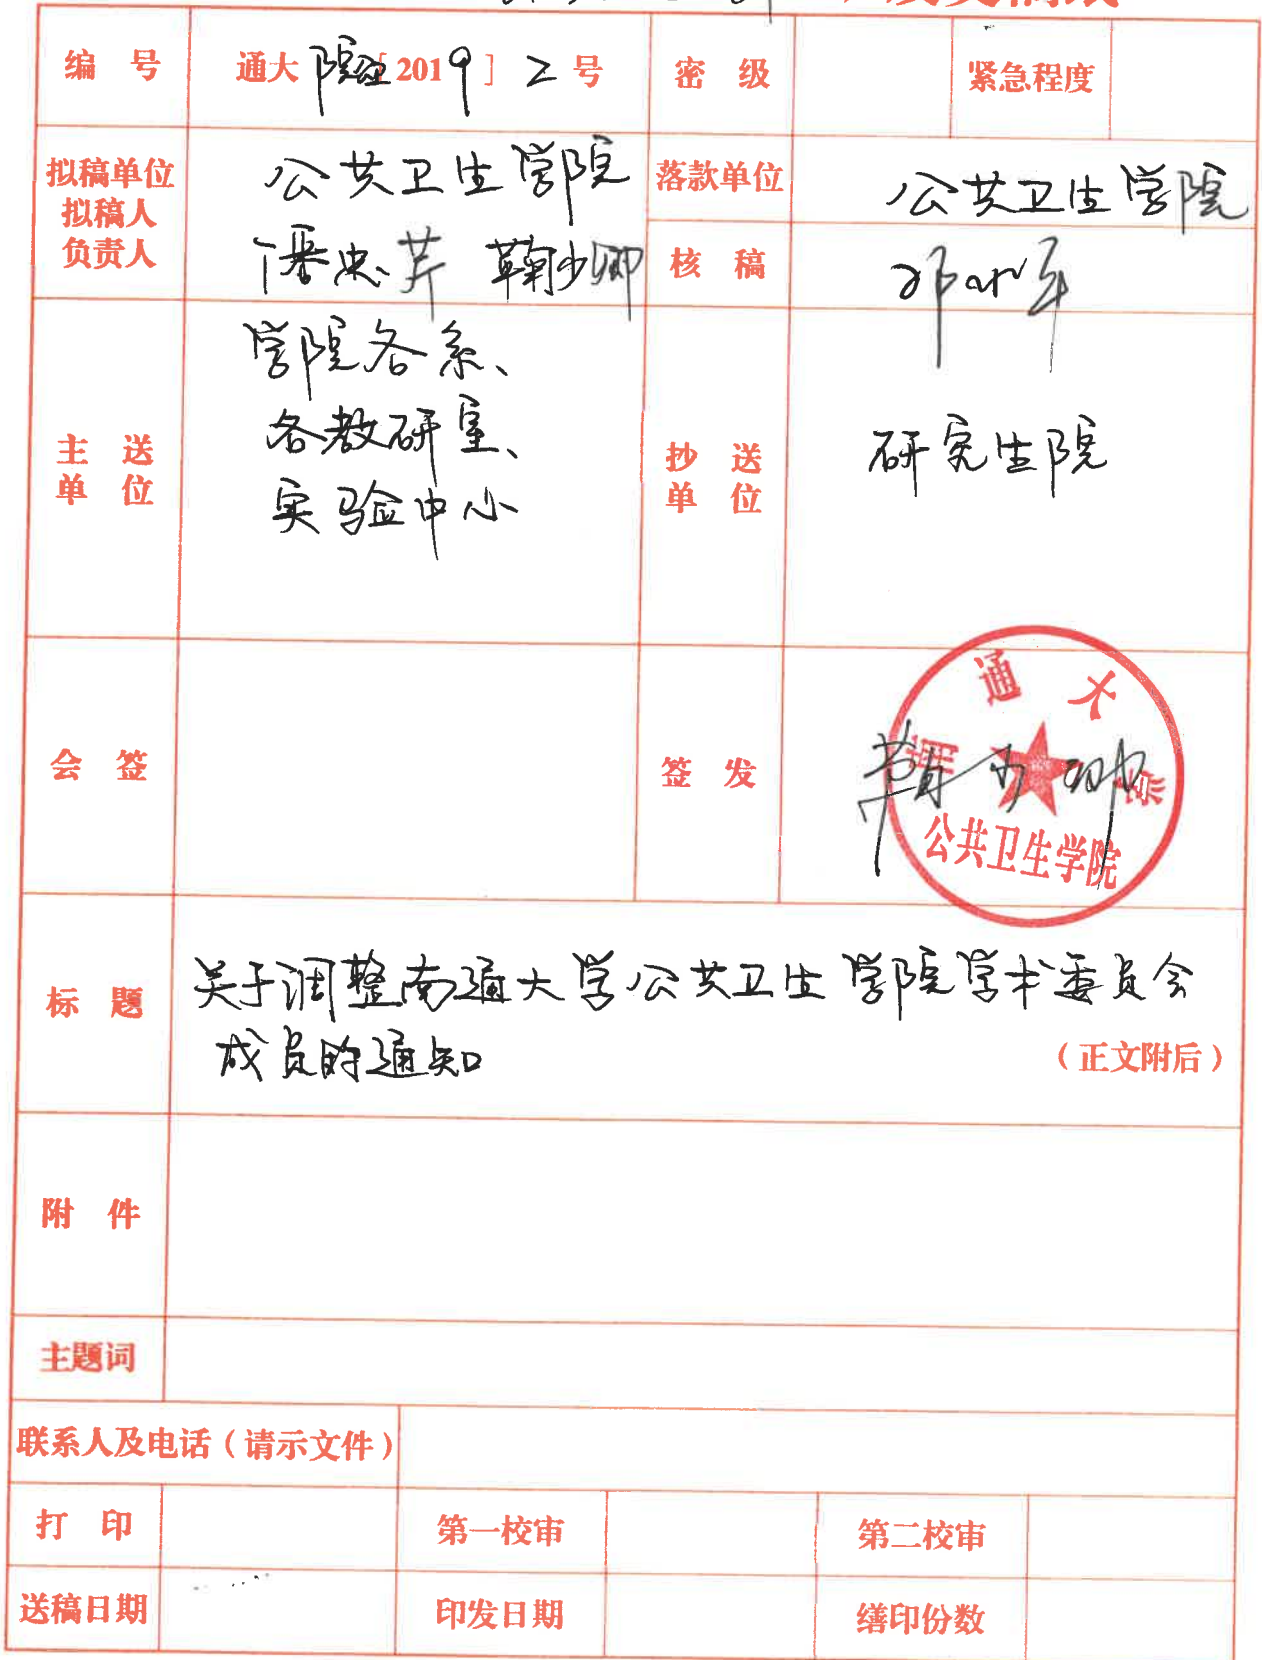 发文稿纸
编 号
通大院[2019]2号
密 级
紧急程度
拟稿单位
拟稿人
负责人
公共卫生学院
潘忠芹 鞠少卿
落款单位
公共卫生学院
核 稿
主 送
单 位
学院各系、
各教研室、
实验中心
抄 送
单 位
研究生院
会 签
签 发
南通大学
公共卫生学院
标 题
关于调整南通大学公共卫生学院学术委员会
成员的通知
(正文附后)
附 件
主题词
联系人及电话(请示文件)
打 印
第一校审
第二校审
送稿日期
印发日期
缮印份数